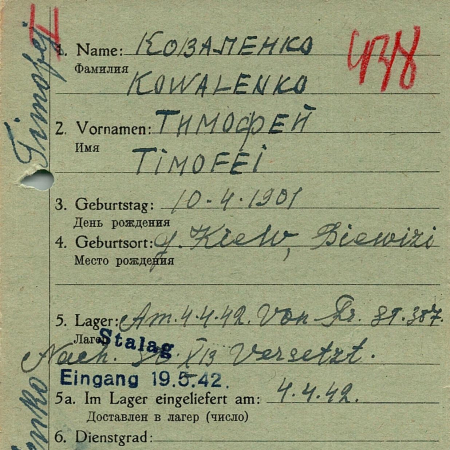 1. Name: КОВАЛЕНКО 438
Фамилия
KOWALENKO
2. Vornamen: ТИМОФЕЙ
Имя
TIMOFEI
3. Geburtstag: 10-4-1901
День рождения
4. Geburtsort: g. Kiew,
Место рождения
5. Lager: Am. 4.4.42. Von Fr. 
Лагерь
Nach. Stalag XIB Versetzt.
Eingang 19.5.42.
5a. Im Lager eingeliefert am: 4.4.42.
Доставлен в лагерь (число)
6. Dienstgrad:
Timofej